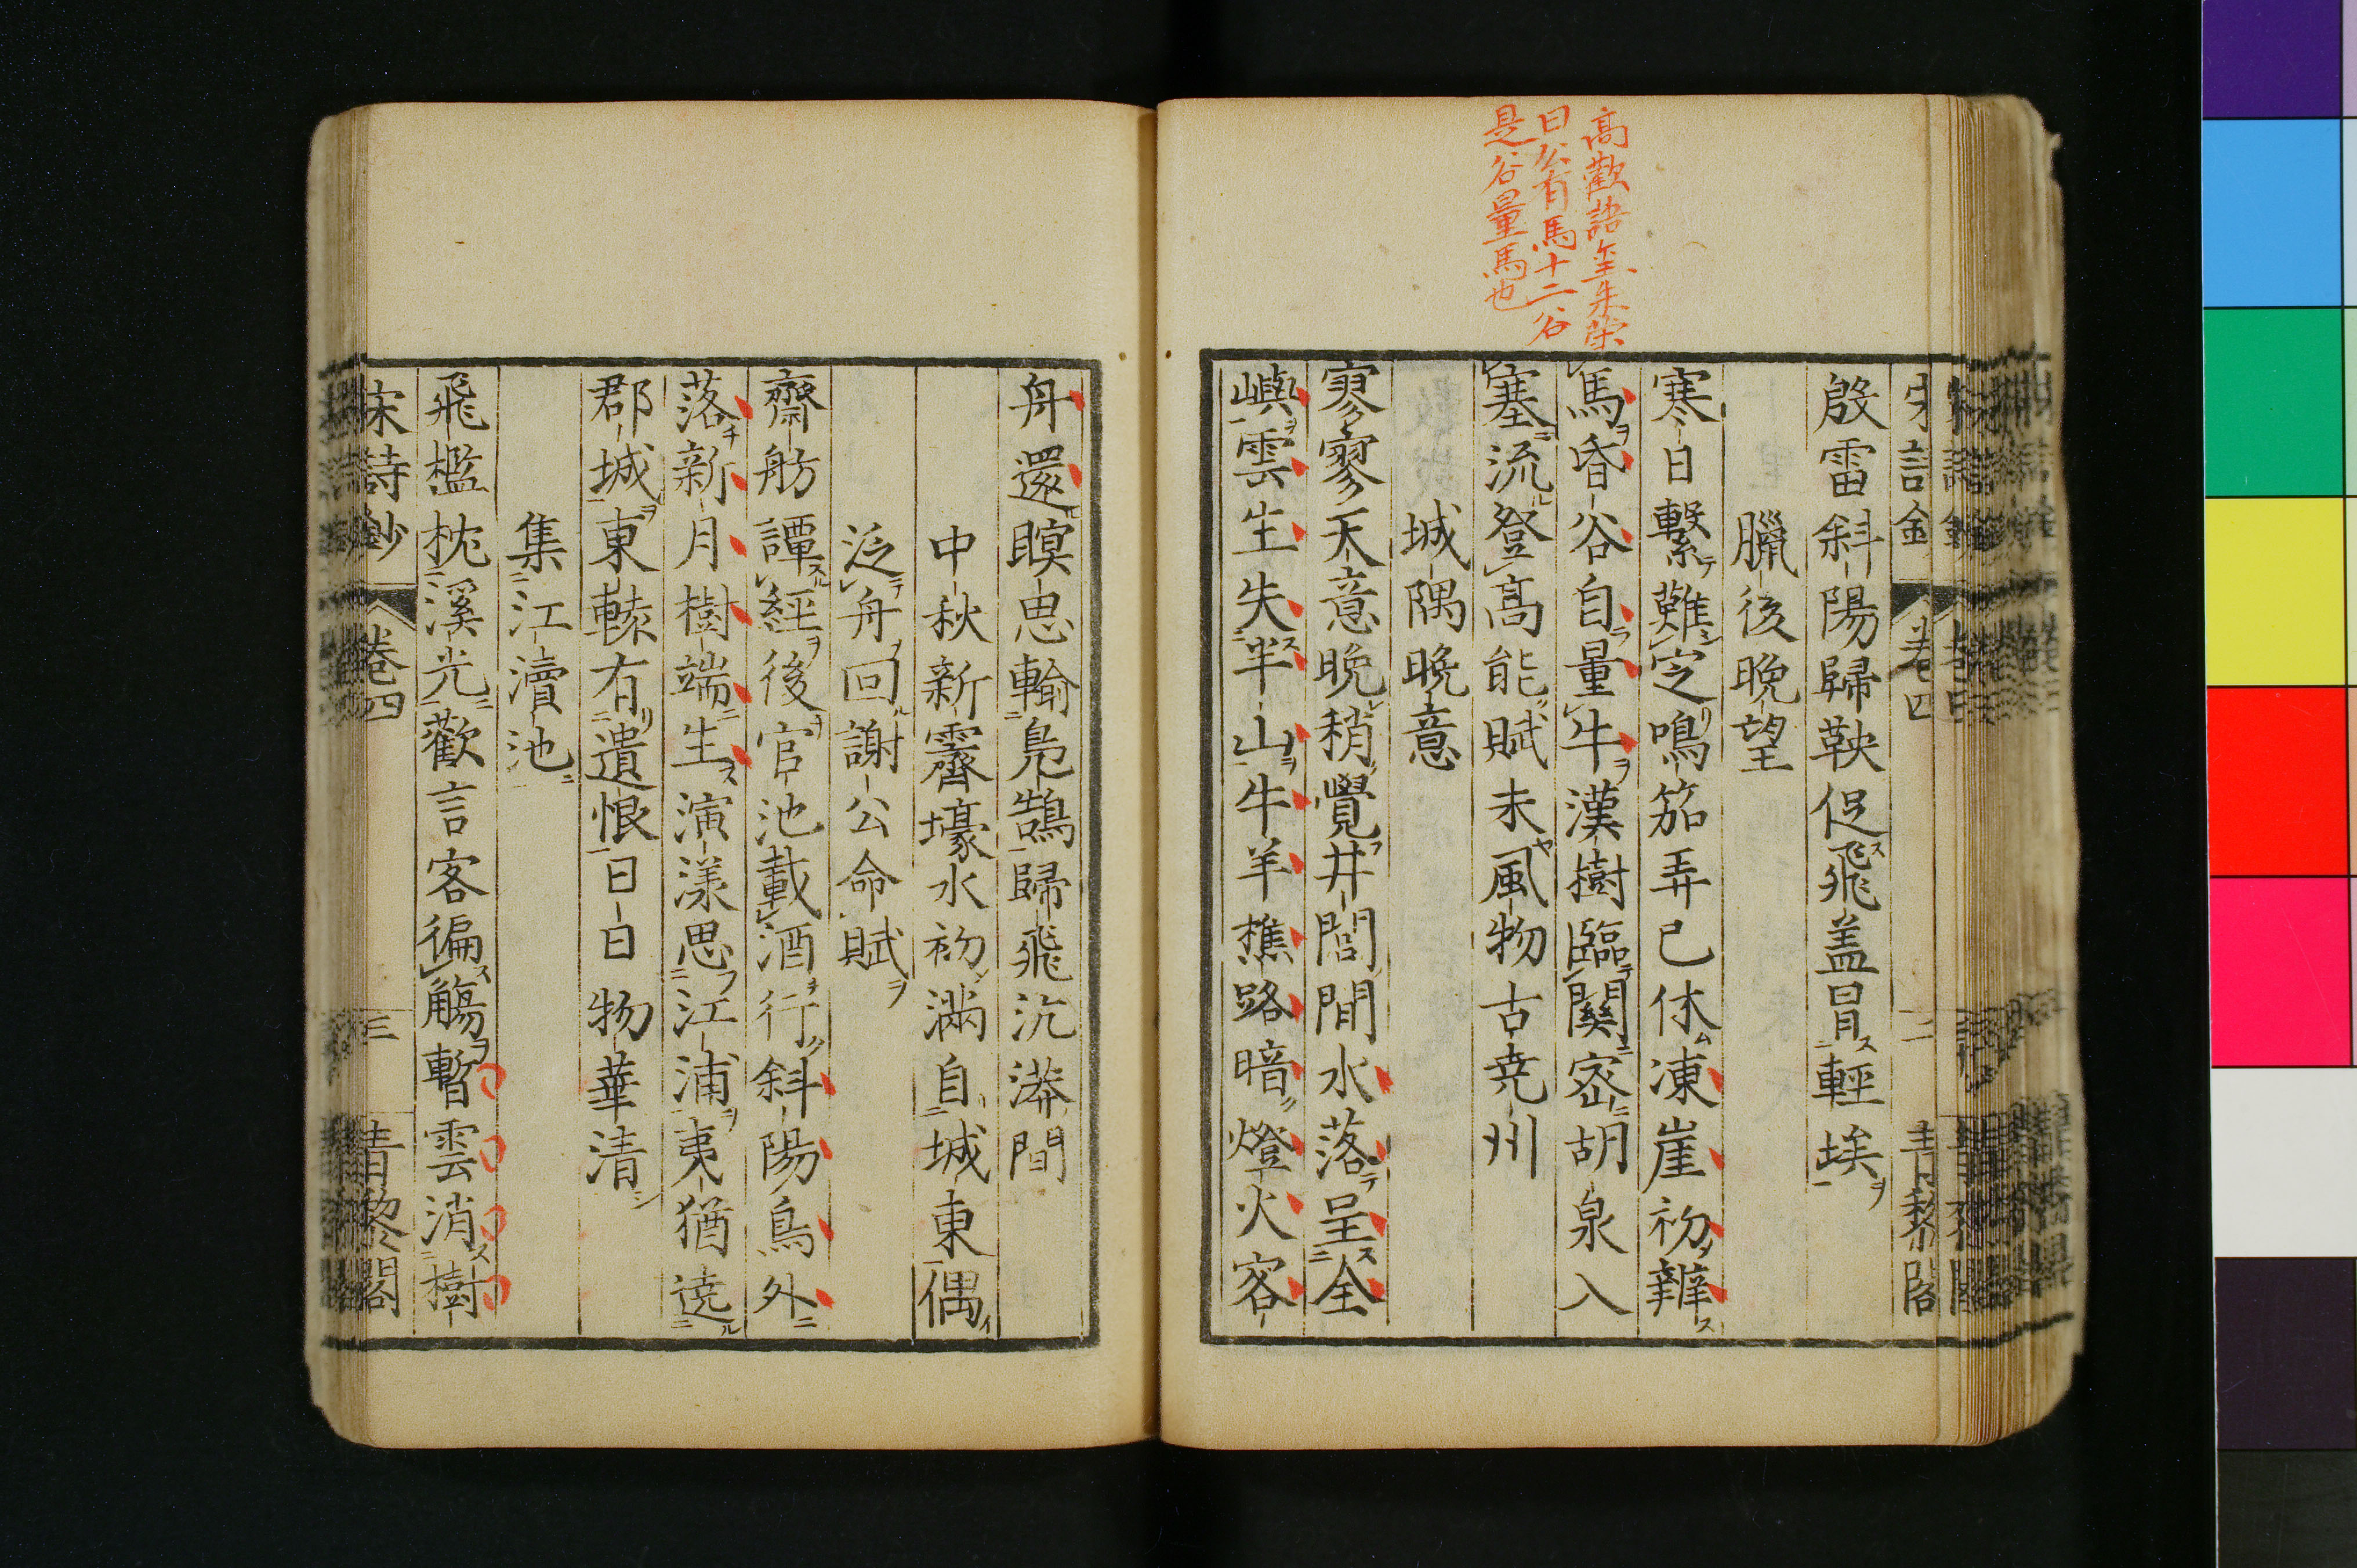 高歡語尒朱榮
曰公有馬十二谷
是谷量馬也
宋詩鈔 卷四 二 青藜閣
殷雷斜陽歸鞅促飛盖冒輕埃
臘後晩望
寒日繋難定鳴笳弄已休凍崖初辨
馬昏谷自量牛漢樹臨關密胡泉入
塞流登高能賦未風物古堯州
城隅晩意
寥寥天意晩稍覺井閭間水落呈全
嶼雲生失半山牛羊樵路暗燈火客
舟還瞑思輸鳧鵠歸飛沆漭間
中秋新霽壕水初滿自城東偶
泛舟回謝公命賦
齋舫譚經後官池載酒行斜陽鳥外
落新月樹端生演漾思江浦夷猶遶
郡城東轅有遺恨日日物華清
集江瀆池
飛檻枕溪光歡言客徧觴暫雲消樹
宋詩鈔 卷四 三 青藜閣